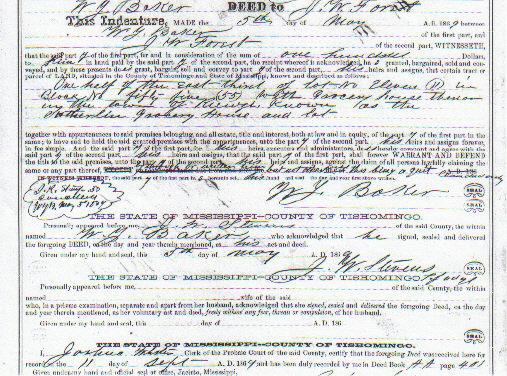 W J Baker DEED to J. W. Forst
This Indenture, MADE the 5th day of May A. D. 1869 between
W J Baker of the first part, and
J W Forst of the second part, WITNESSETH,
that the said part y of the first part, for and in consideration of the sum of one hundred Dollars,
in hand paid by the said part y of the second part, the receipt whereof is hereby acknowledged, has granted, bargained, sold and con-
veyed, and by these presents does grant, bargain, sell and convey to said part y of the second part, his heirs and assigns, that certain tract or
parcel of LAND, situated in the County of Tishomingo and State of Mississippi, known and described as follows:
One half of the east third of lot No Eleven (11) in
Block No fifty nine (59) with Grocery house thereon
in the town of Rienzi, known as the
Grocery House and lot
together with appurtenances to said premises belonging, and all estate, title and interest, both at law and in equity, of the part y of the first part in the
same; to have and to hold the said granted premises with the appurtenances, unto the part y of the second part his heirs and assigns forever,
in fee simple. And the said part y of the first part, his heirs, executors and administrators, do hereby covenant and agree with the
said part y of the second part, his heirs and assigns, that the said part y of the first part, shall forever WARRANT AND DEFEND
the title of the said premises, unto the part y of the second part, his heirs and assigns, against the claim of all persons lawfully claiming the
same or any part thereof.
IN WITNESS WHEREOF, the said part y of the first part hereunto set his hand and seal the day and year first above written.
W J Baker SEAL
May 5th 1869
SEAL
THE STATE OF MISSISSIPPI—COUNTY OF TISHOMINGO.
Personally appeared before me, J. W. Stevens of the said County, the within
named W J Baker who acknowledged that he signed, sealed and delivered
the foregoing DEED, on the day and year therein mentioned, as his act and deed.
Given under my hand and seal, this 5th day of May A. D. 1869
J. W. Stevens SEAL
THE STATE OF MISSISSIPPI—COUNTY OF TISHOMINGO.
Personally appeared before me, of the said County, the within
named wife of the said
who, in a private examination, separate and apart from her husband, acknowledged that she signed, sealed and delivered the foregoing Deed, on the day
and year therein mentioned, as her voluntary act and deed, freely without any fear, threat or compulsion, of her husband.
Given under my hand and seal, this day of A. D. 186
SEAL
THE STATE OF MISSISSIPPI—COUNTY OF TISHOMINGO.
I, Joshua Clerk of the Probate Court of the said County, certify that the foregoing Deed was received here for
record on the 11 day of Sept A. D. 1869 and has been duly recorded by me in Deed Book AA page 401
Given under my hand and official seal at office, Jacinto, Mississippi,